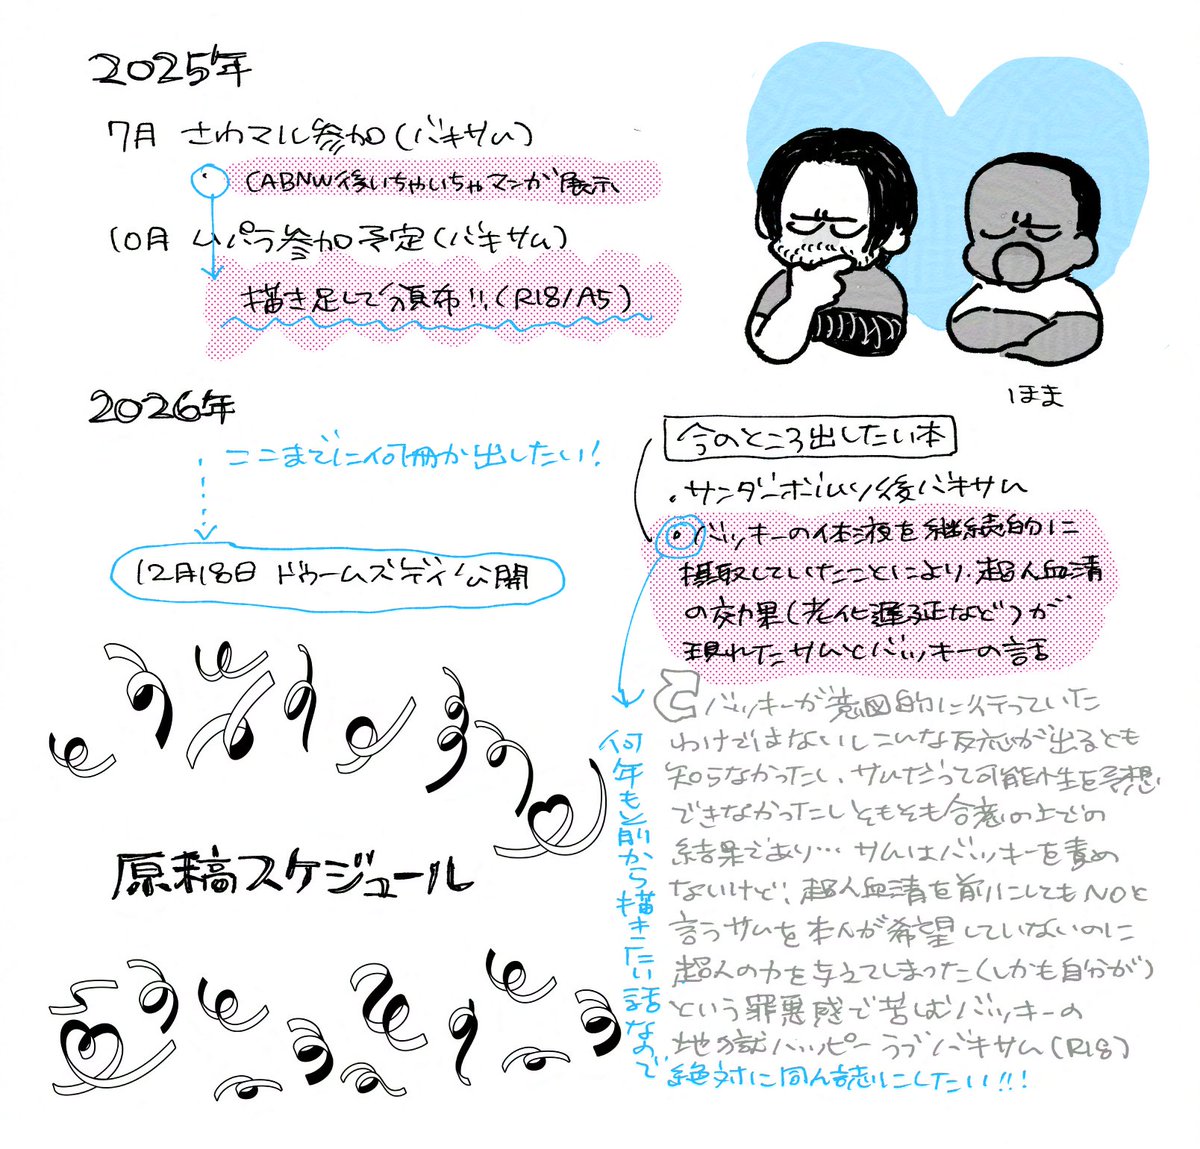 2025年
7月 さわマル参加(バキサム)
・CABNW後いちゃいちゃマンガ展示
10月 ムパラ参加予定(バキサム)
描き足して頒布!!(R18/A5)
ほま
2026年
ここまでに何冊か出したい!
12月18日 ドゥームズデイ公開
原稿スケジュール
今のところ出したい本
・サンダーボルツ後バキサム
・バッキーの体液を継続的に
摂取していたことにより、超人血清
の効果(老化遅延など)が
現れたサムとバッキーの話
バッキーが意図的に行っていた
わけではないしこんな反応が出るとも
知らなかったし、サムだって可能性を予想
できなかったしそもそも合意の上での
結果であり…サムはバッキーを責め
ないけど、超人血清を前にしてもNOと
言うサムを本人が希望していないのに
超人の力を与えてしまった(しかも自分が)
という罪悪感で苦むバッキーの
地獄ハッピーラブバキサム(R18)
何年も前から描きたい話なので
絶対に同人誌にしたい!!!